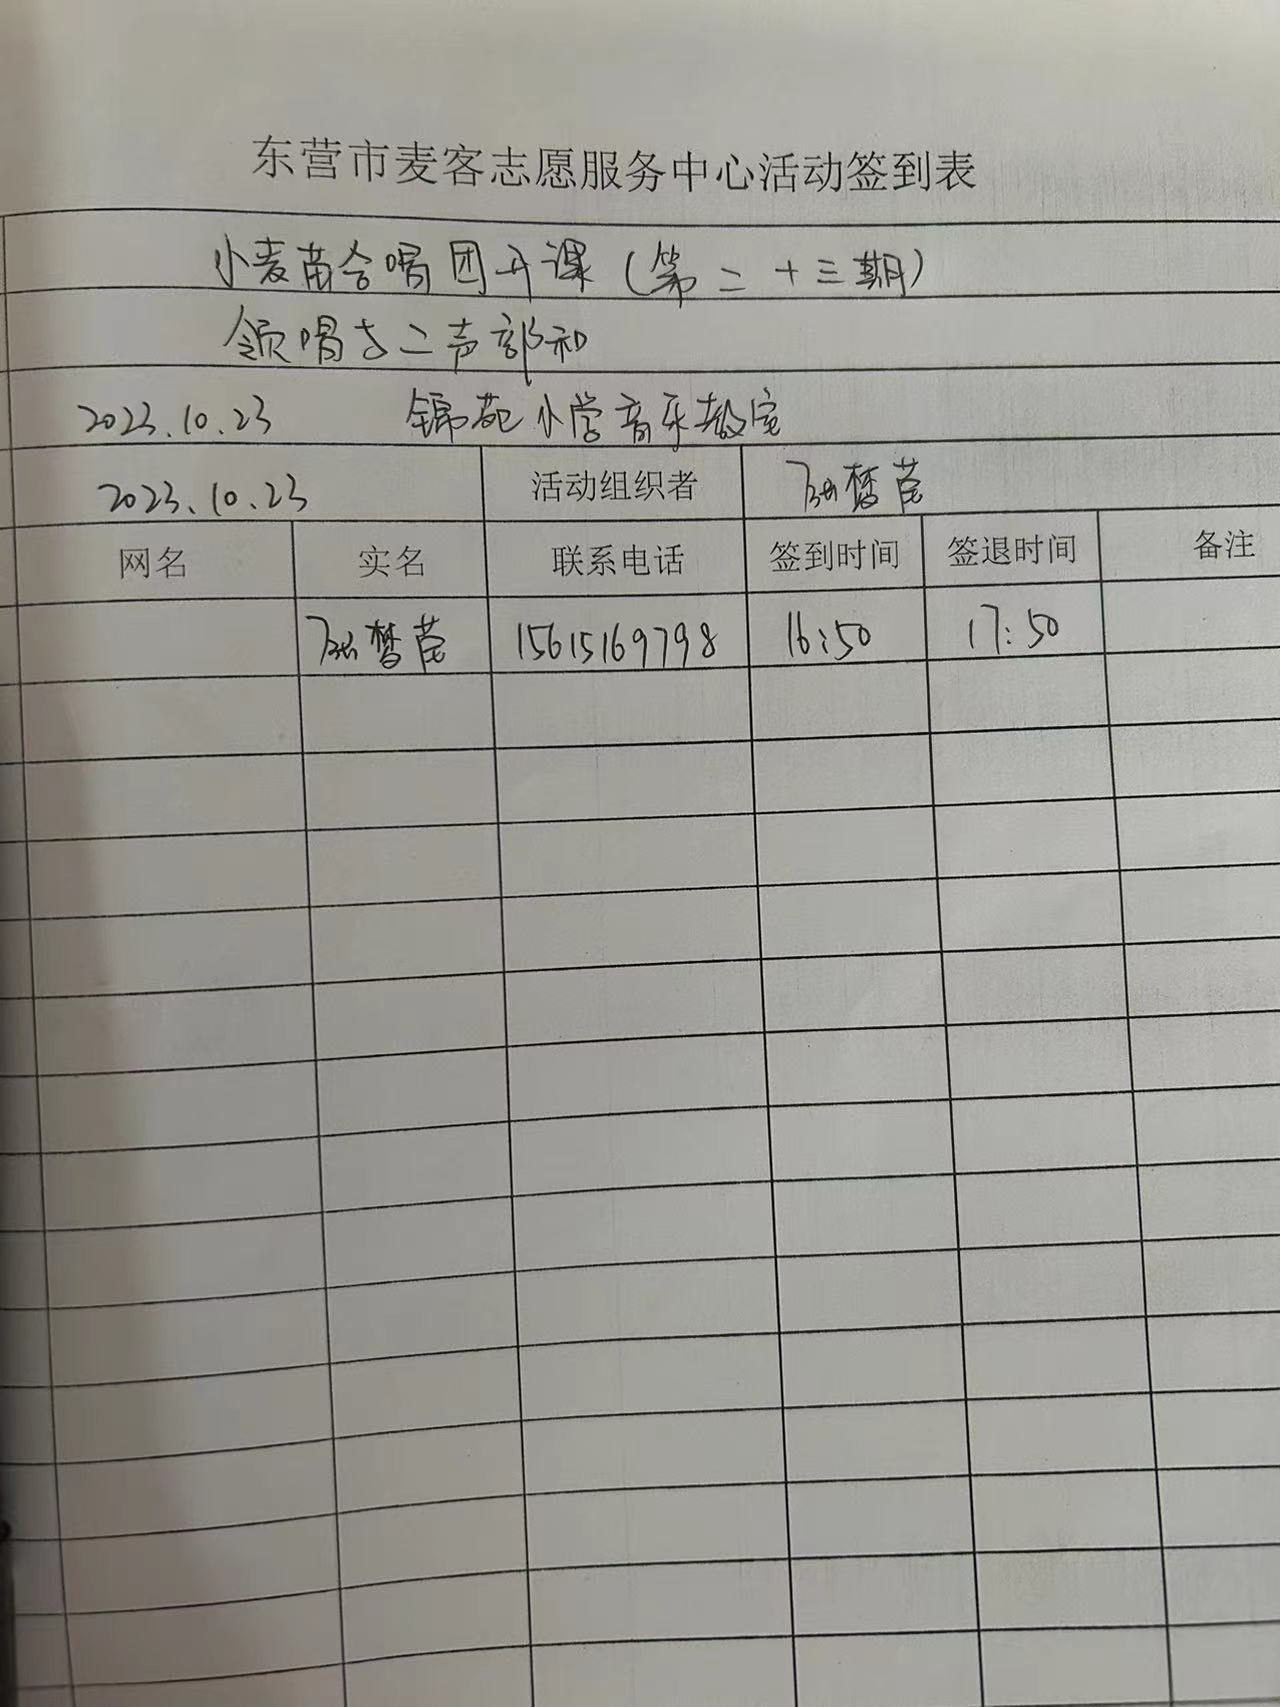 东营市麦客志愿服务中心活动签到表
小麦苗合唱团开课(第二十三期)
领唱与二声部和
2023.10.23 锦苑小学音乐教室
2023.10.23 活动组织者 张梦茁
网名 实名 联系电话 签到时间 签退时间 备注
张梦茁 15615169798 16:50 17:50